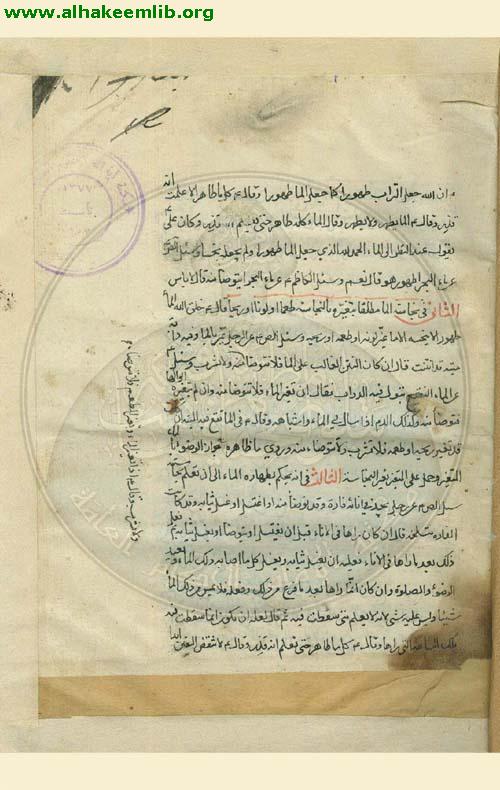 www.alhakeemlib.org
ان الله جعل التراب طهورا كما جعل الماء طهورا وقال ع كل ماء طاهر الا ما علمت انه
قذر وقال ع الماء يطهر ولا يطهر وقال الماء كله طاهر حتى يعلم انه قذر وكان علي ع
يقول عند النظر الى الماء الحمد لله الذي جعل الماء طهورا ولم يجعله نجسا وسئل
عن ماء البحر اطهور هو قال نعم وسئل الكاظم ع عن ماء البحر ايتوضأ منه قال لا باس
الثاني في نجاسة الماء مطلقا بتغيره بالنجاسة طعما او لونا او ريحا قال ع خلق الله الماء
طهورا لا ينجسه الا ما غير لونه او طعمه او ريحه وسئل الص ع عن الرجل يمر بالماء وفيه دابة
ميتة قد انتنت قال ان كان النتن الغالب على الماء فلا تتوضأ منه ولا تشرب وسئل
عن الماء النقيع تبول فيه الدواب فقال ان تغير الماء فلا تتوضأ منه وان لم تغيره ابوالها
فتوضأ منه وكذلك الدم اذا سال في الماء واشباهه وقال ع في الماء
قد تغير ريحه او طعمه فلا تشرب ولا تتوضأ منه وروي ما ظاهره جواز الوضوء
المتغير وحمل على التغير بغير النجاسة الثالث في انه يحكم بطهارة الماء الى ان تعلم نجاسته
سئل الص ع عن رجل يجد في انائه فارة وقد توضأ منه او اغتسل او غسل ثيابه وقد كانت
الفارة متسلخة قال ان كان رآها في الاناء قبل ان يغتسل او يتوضأ او يغسل ثيابه ثم فعل
ذلك بعد ما رآها في الاناء فعليه ان يغسل ثيابه ويغسل كل ما اصابه ذلك الماء ويعيد
الوضوء والصلوة وان كان انما رآها بعد ما فرغ من ذلك وفعله فلا يمس من ذلك الماء
شيئا وليس عليه شيء لانه لا يعلم متى سقطت فيه ثم قال لعله ان يكون انما سقطت فيه
تلك الساعة التي رآها وقال ع كل ماء طاهر حتى تعلم انه قذر وقال ع لا تنقض اليقين ابدا